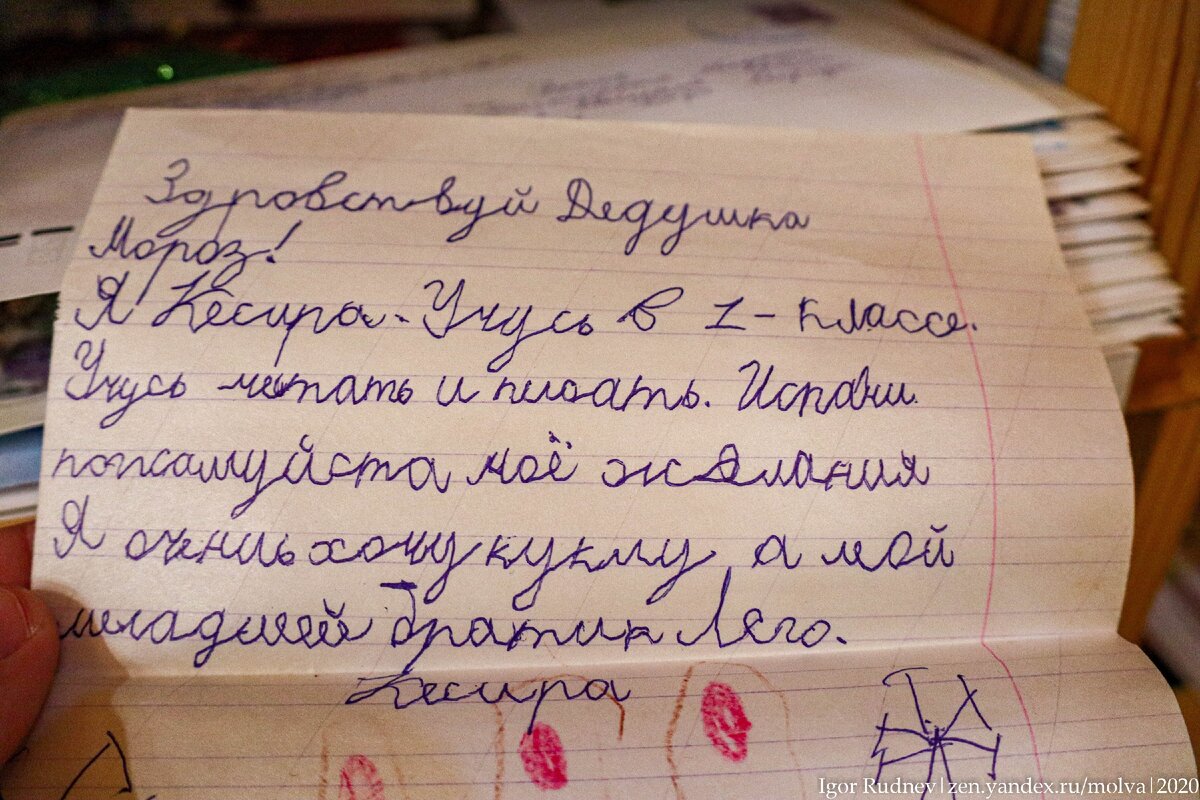 Здровствуй Дедушка
Мороз!
Я Кесира. Учусь в 1-классе.
Учусь читать и писать. Исполни
пожалуйста моё желания
Я очень хочу куклу а мой
младшей братик Лего.
Кесира
Igor Rudnev|zen.yandex.ru/molva|2020